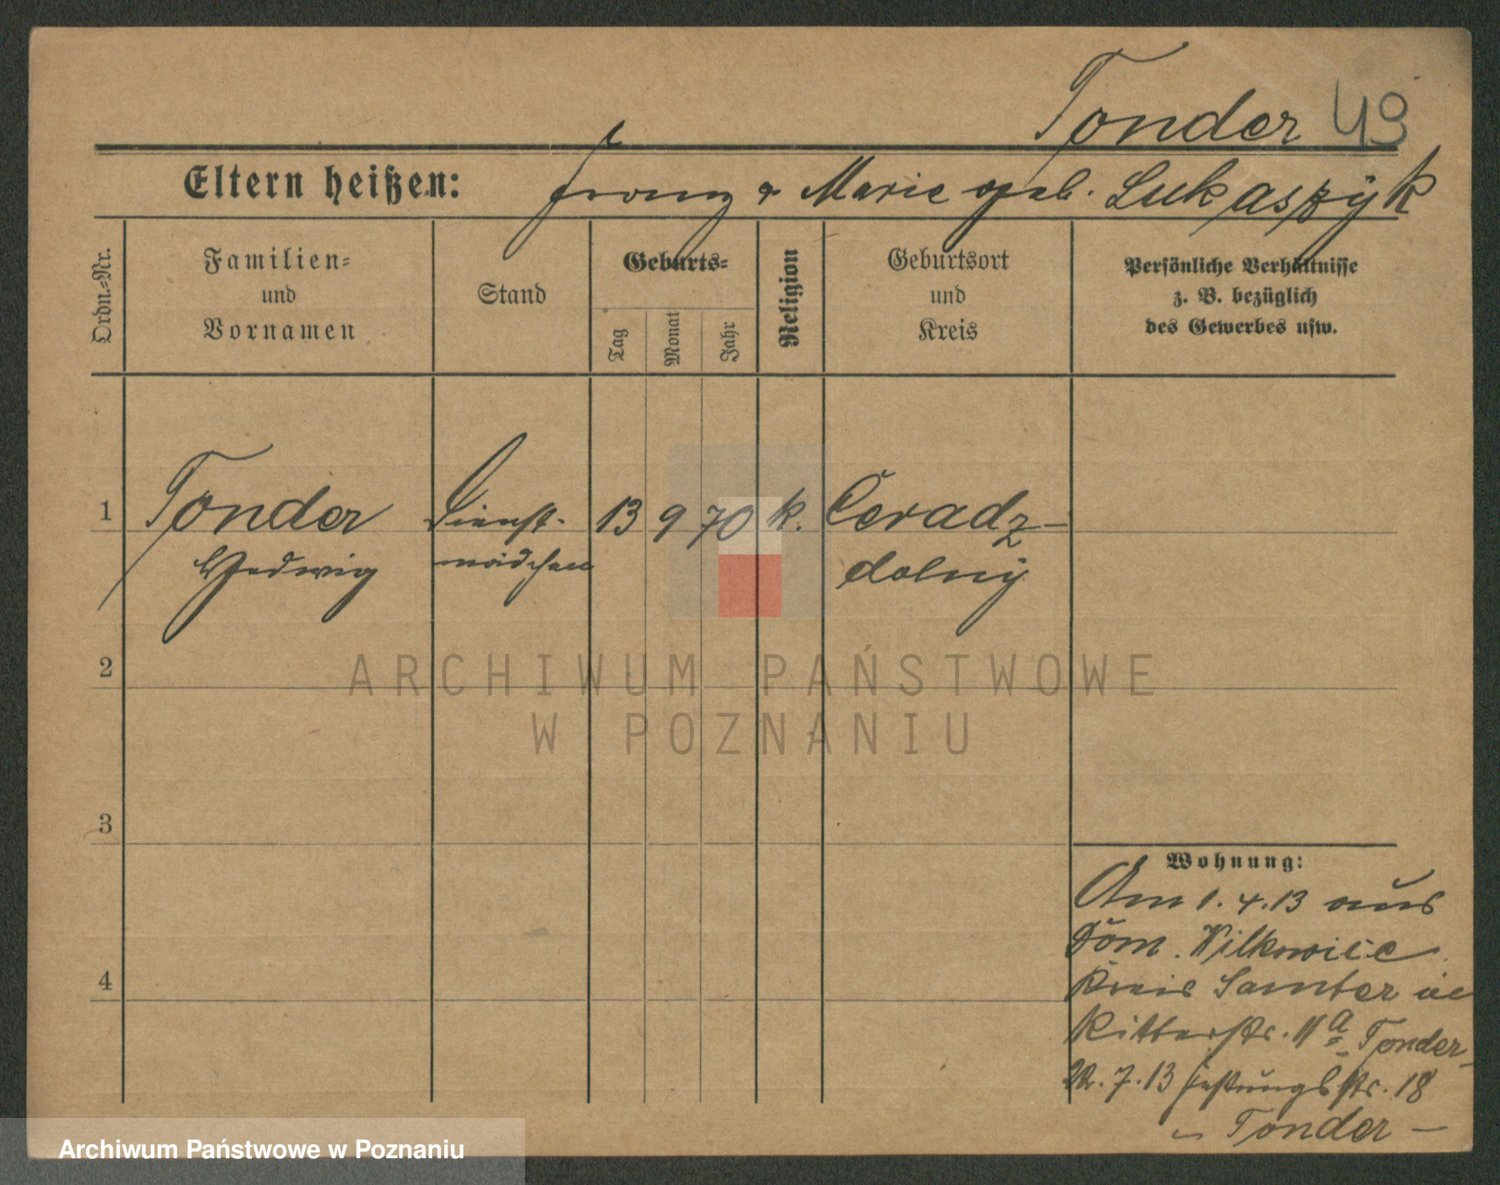 Tonder 49
Eltern heißen: Franz & Marie geb. Lukaszÿk
Ordn.-Nr.
Familien-
und
Vornamen
Stand
Geburts-
Tag
Monat
Jahr
Religion
Geburtsort
und
Kreis
Persönliche Verhältnisse
z. B. bezüglich
des Gewerbes usw.
1 Tonder Dienst- 13 9 70 k. Ceradz-
Hedwig mädchen dolny
2
3
4
ARCHIWUM PAŃSTWOWE
W POZNANIU
Wohnung:
Am 1.4.13 aus
Dom. Wilkowice
Kreis Samter
Ritterstr. 11a Tonder
22.7.13 Festungsstr. 18
Tonder
Archiwum Państwowe w Poznaniu